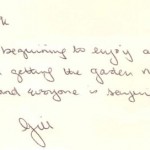 k
beginning to enjoy a
getting the garden
and everyone is
Gill